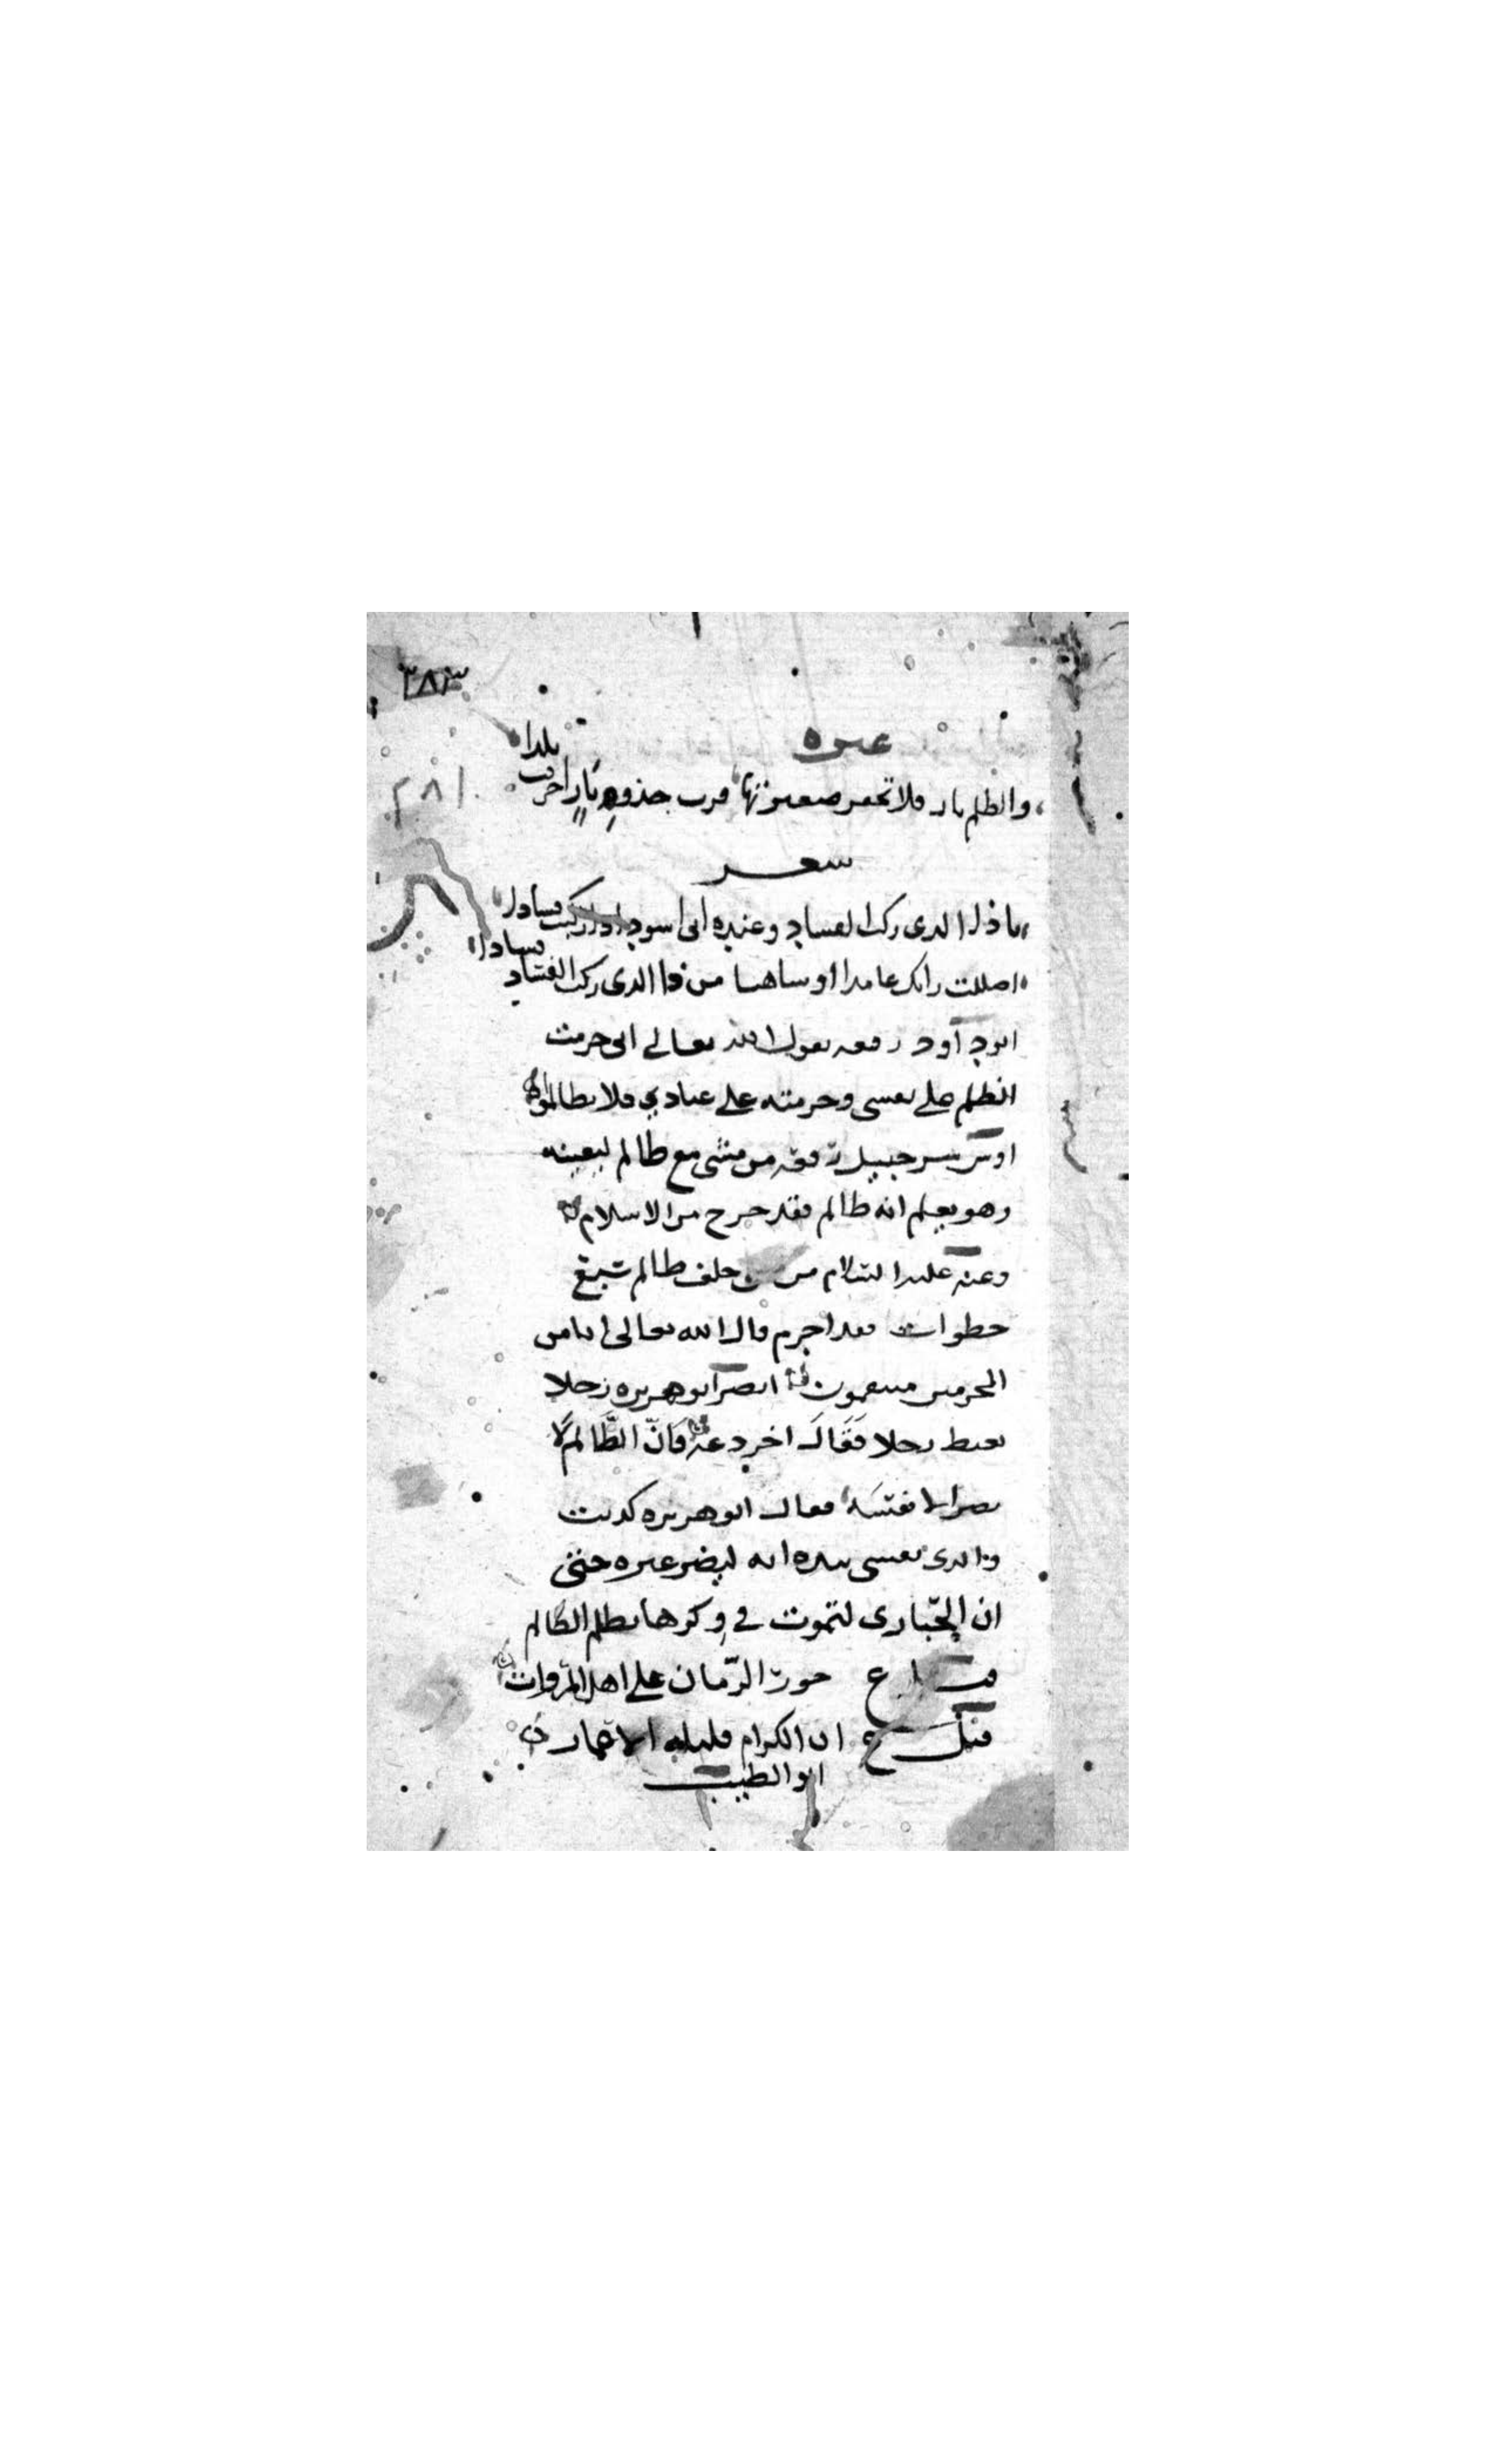 ٣٨٣
غيره
والظلم نار فلا تحقر صغيرتها فرب جذوة نار احرقت بلدا
شعر
ماذا الذي ركب الفساد وعنده اني اسود اذا ركبت فسادا
اضللت رايك عامدا او ساهيا من ذا الذي ركب الفساد فسادا
ابو داود رفعه يقول الله تعالى اني حرمت
الظلم على نفسي وحرمته على عبادي فلا تظالموا
اوس بن شرحبيل رفعه من مشى مع ظالم ليعينه
وهو يعلم انه ظالم فقد خرج من الاسلام
وعنه عليه السلام من خلف ظالم سبع
خطوات فقد اجرم قال الله تعالى انا من
المجرمين منتقمون ابو هريره رجلا
يعظ رجلا فقال اخر دعه فان الظالم لا
يضر الا نفسه فقال ابو هريره كذبت
والذي نفسي بيده انه ليضر غيره حتى
ان الحبارى لتموت في وكرها بظلم الظالم
جور الزمان على اهل المروات
ان الكرام قليلة الاعمار
ابو الطيب